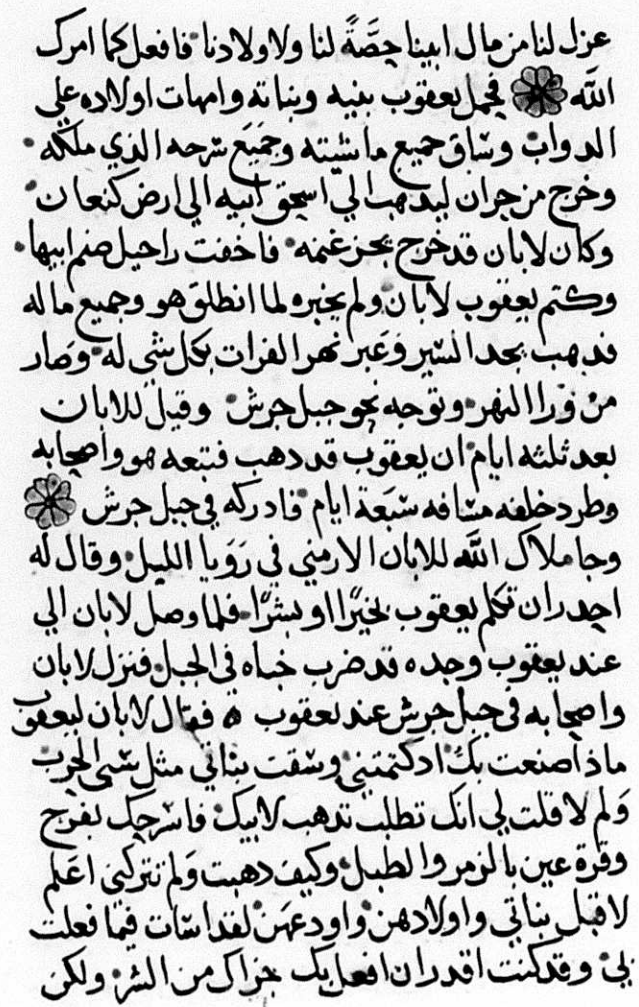 عزل لنا من مال ابينا حِصَّةً لنا ولاولادنا فافعل كما امرك
اللّه فحمل يعقوب بنيه وبناته وامهات اولاده علي
الدواب وسَاق جميع ماشيته وجميَع سَرحه الذي ملكه
وخرج من حران ليدهب الي اسحق ابيه الي ارض كنعان
وكان لابان قد خرج يجز غنمه فاخفت راحيل صنم ابيها
وكتم يعقوب لابان ولم يخبره لما انطلق هو وجميع ما له
فدهب بجد السَير وعَبر نهر الفرات بكل شي له وصَار
من ورا النهر وتوجه نحو جبل جرش وقيل للابان
بعد ثلثه ايام ان يعقوب قد دهب فتبعه هو واصحابه
وطرد خلفه مسَافه سَبَعة ايام فادركه في جبل جرش
وجا ملاك اللّه للابان الارمني في رَويا الليل وقال له
احدر ان تكلم يعقوب بخيرًا او بشرًا فلما وصل لابان الي
عند يعقوب وجده قد ضرب خباه في الجبل فنزل لابان
واصحابه في جبل جرش عند يعقوب فقال لابان ليعقوب
ماذا صنعت بك اد كتمتني وسَقت بناتي مثل سَبي الحرب
وَلم لا قلت لي انك تطلب تدهب لابيك فاسَرحك بفرح
وقرة عين بالزمر والطبل وكيف دهبت وَلم تتركني اعَلم
لاقبل بناتي واولادهن واودعهَن لقد اسَات فيما فعلت
بي وقد كنت اقدر ان افعل بك جزاك من الشر ولكن